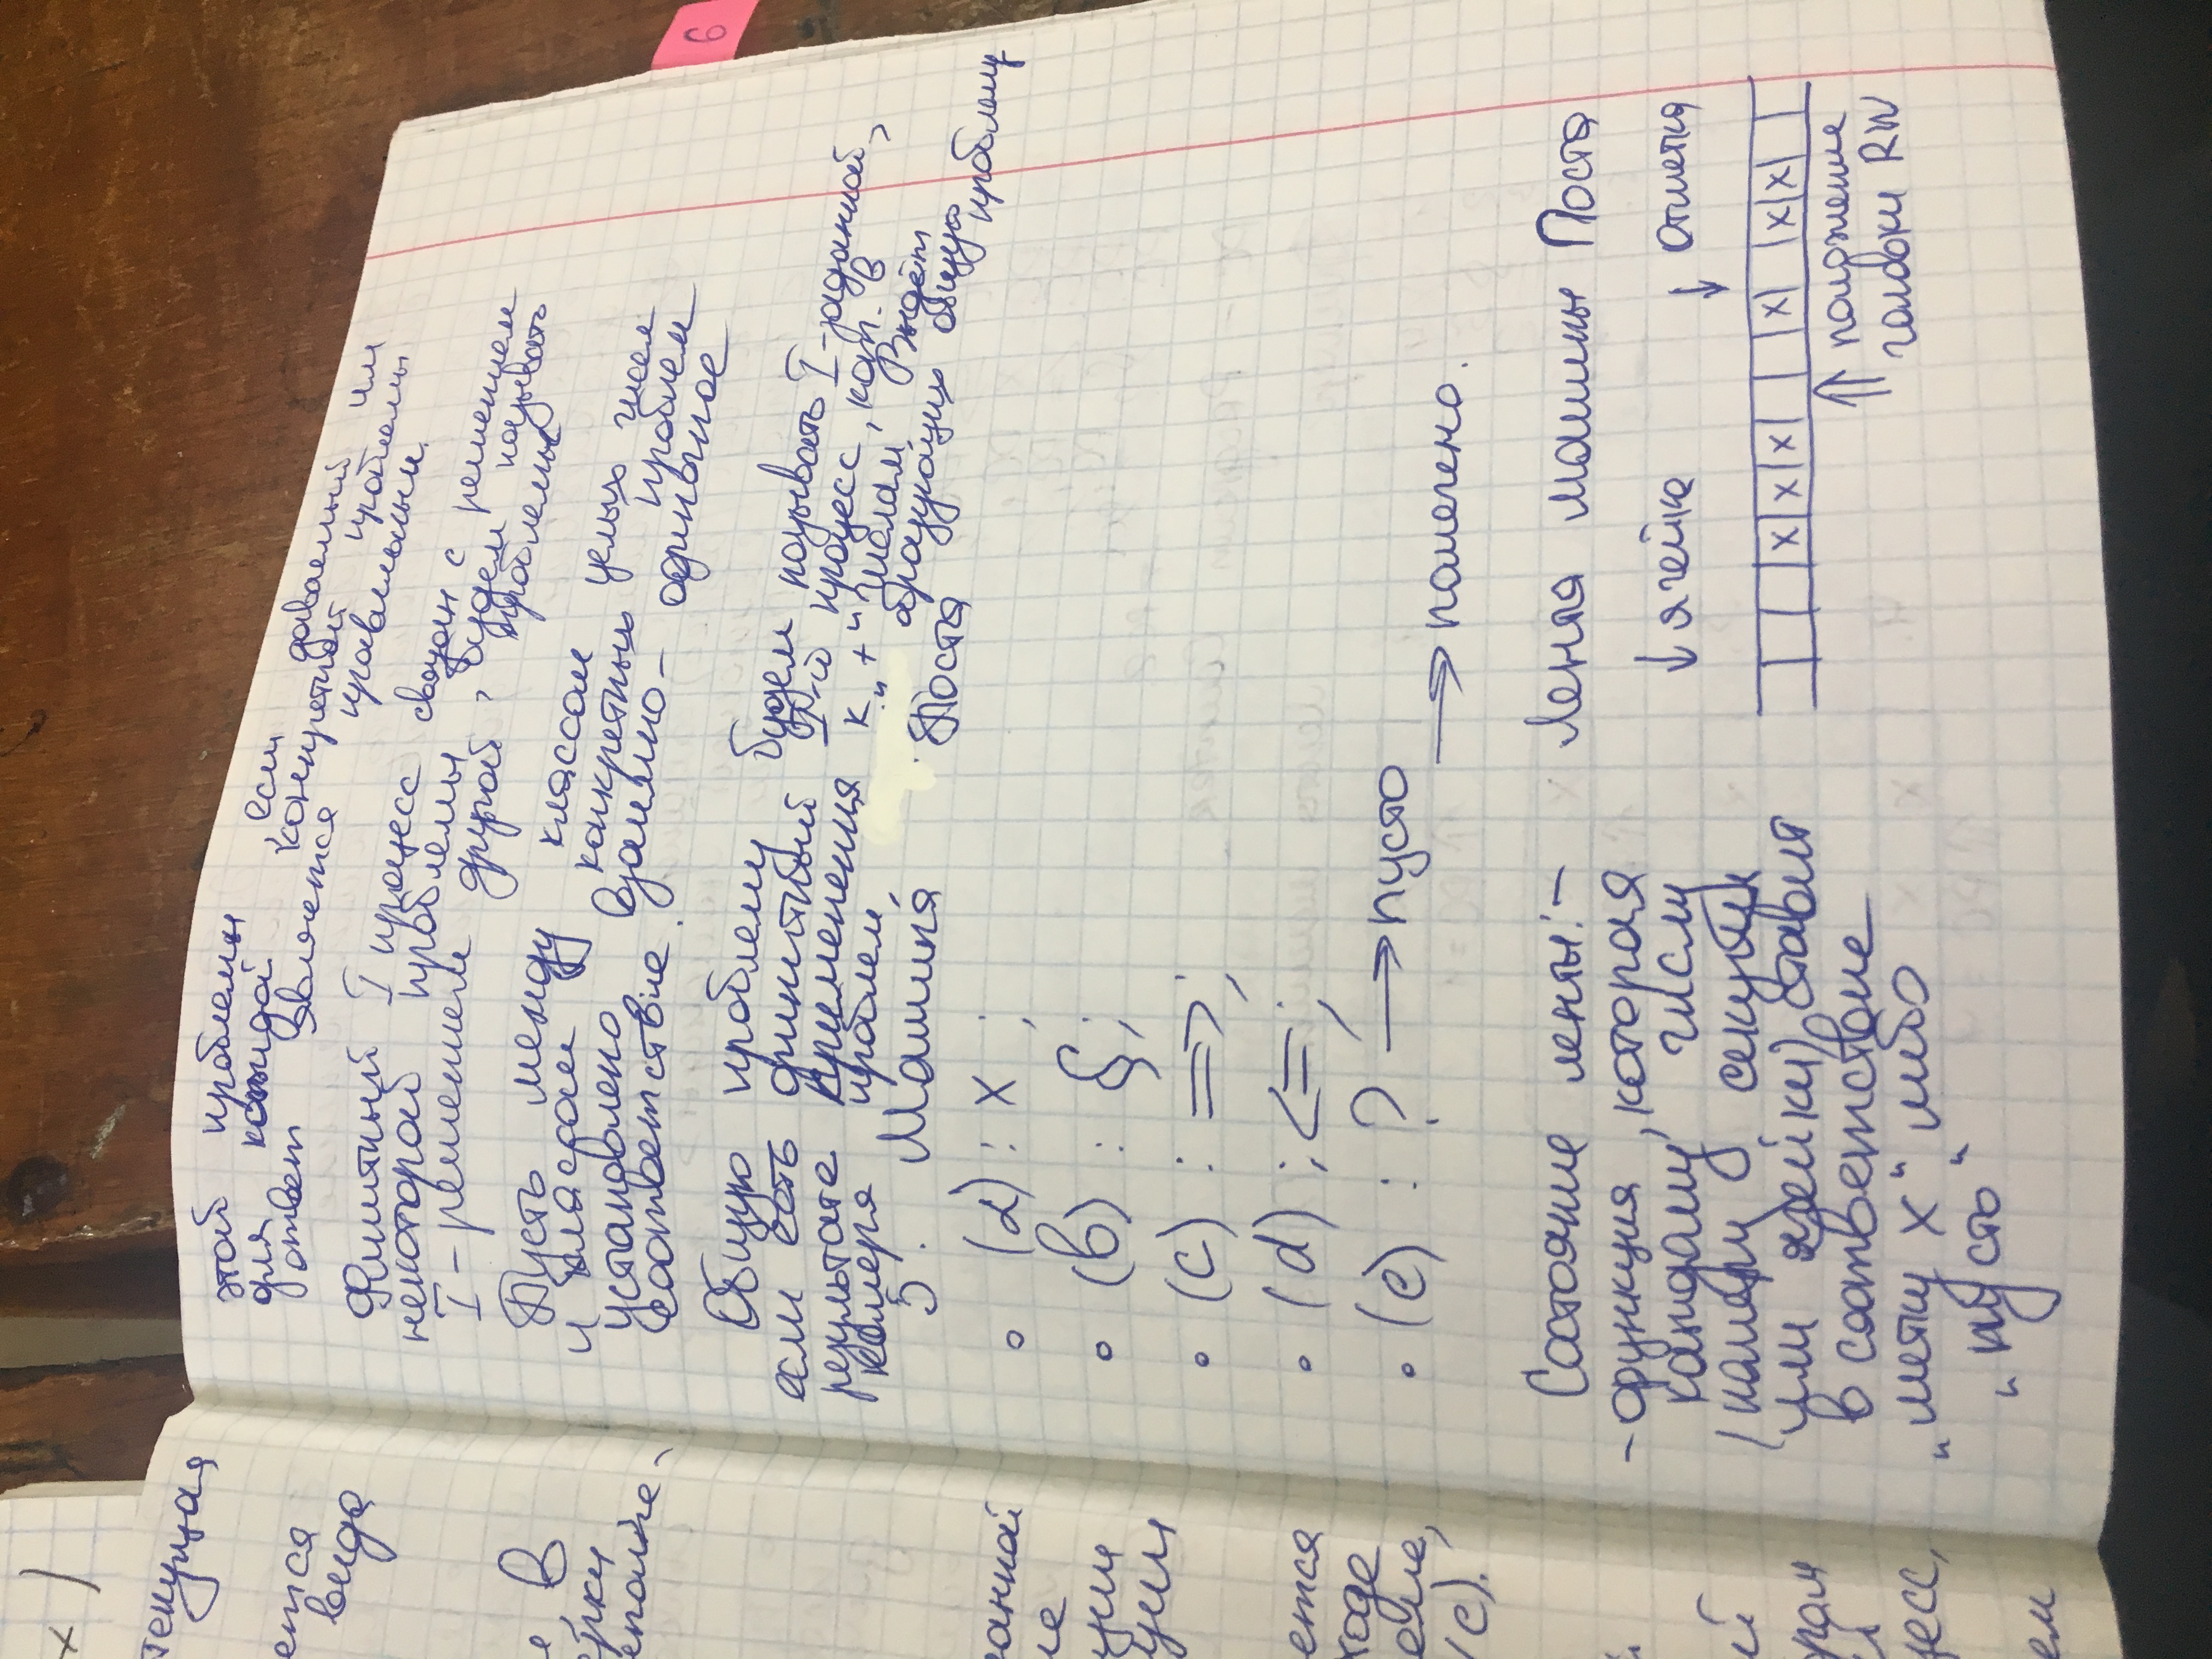 х)
текущая
ется
вида
е, в
ется
(c).
ем
этой проблемы, если даваемый им
для каждой конкретной проблемы
ответ является правильным.
Финитный I процесс связан с решением
некоторой проблемы, будем называть
I-решением другой проблемы
Пусть между классом целых чисел
и классом конкретных проблем
установлено взаимно-одиночное
соответствие.
Общую проблему будем называть I-заданной,
если есть финитный I-й процесс, кот. в
результате применения к "+" числам выдёт
номера проблем, образующих общую проблему
5. Машина Поста
• (a) : X ;
• (b) : § ;
• (c) : => ;
• (d) ; <= ;
• (e) : ? → пусто
→ помечено.
Состояние ленты: -
- функция, которая
каждому числу
(номеру секции
или ячейки) ставит
в соответствие
„метку х“ либо
„пусто“
Лента машины Поста
↓ ячейка ↓ отметка
x x x x x x
⇑ положение
головки RW
6